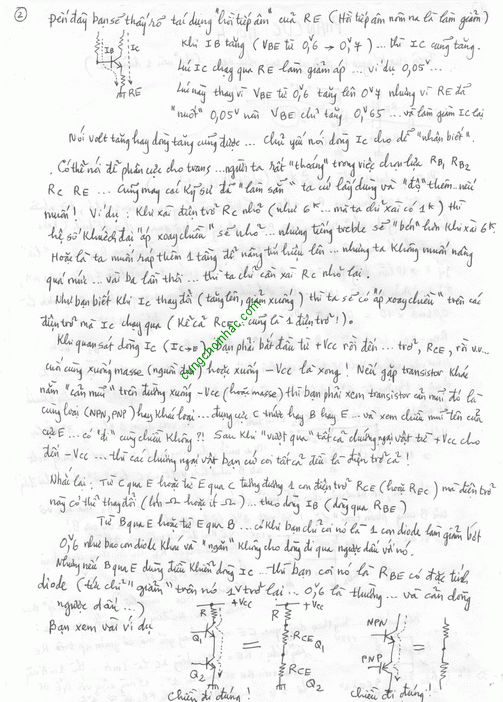 ② Đến đây bạn sẽ thấy rõ tác dụng "hồi tiếp âm" của RE (Hồi tiếp âm nôm na là làm giảm)
Khi IB tăng (VBE từ 0,6 → 0,7) ... thì IC cũng tăng.
Lúc IC chạy qua RE làm giảm áp ... ví dụ 0,05v...
Lúc này thay vì VBE từ 0,6 tăng lên 0,7 nhưng vì RE đã
"nuốt" 0,05v nên VBE chỉ tăng 0,65 ... và làm giảm IC lại
IB IC
RE
Nói volt tăng hay dòng tăng cũng được ... Chủ yếu nói dòng IC cho dễ "nhận biết".
. Có thể nói để phân cực cho trans... người ta rất "thoáng" trong việc chọn lựa RB1, RB2
RC RE ... Cũng may các kỹ sư đã "làm sẵn" ta cứ lấy dùng và "độ" thêm nếu
muốn! Ví dụ: Khi xài điện trở RC nhỏ (như 6K ... mà ta chỉ xài có 1K) thì
hệ số khuếch đại "áp xoay chiều" sẽ nhỏ ... nhưng tiếng treble sẽ "bén" hơn khi xài 6K.
Hoặc là ta muốn ráp thêm 1 tầng để nâng tín hiệu lên ... nhưng ta không muốn nâng
quá mức ... vài ba lần thôi ... thì ta chỉ cần xài RC nhỏ lại.
Như bạn biết khi IC thay đổi (tăng lên, giảm xuống) thì ta sẽ có "áp xoay chiều" trên các
điện trở mà IC chạy qua (Kể cả RCE cũng là 1 điện trở!).
Khi quan sát dòng IC (IC→E) bạn phải bắt đầu từ +Vcc rồi đến ... trở, RCE, rồi v.v...
cuối cùng xuống masse (nguồn đơn) hoặc xuống -Vcc là xong! Nếu gặp transistor khác
nằm "cản mũi" trên đường xuống -Vcc (hoặc masse) thì bạn phải xem transistor cản mũi đó là
cùng loại (NPN, PNP) hay khác loại ... đụng cực C trước hay B hay E ... và xem chiều mũi tên của
cực E ... có "đi" cùng chiều không?! Sau khi "vượt qua" tất cả chướng ngại vật từ +Vcc cho
đến -Vcc ... thì các chướng ngại vật bạn cứ coi tất cả đều là điện trở cả!
Nhắc lại: Từ C qua E hoặc từ E qua C tương đương 1 con điện trở RCE (hoặc REC) mà điện trở
này có thể thay đổi (lớn Ω hoặc ít Ω) ... theo dòng IB (dòng qua RBE)
Từ B qua E hoặc từ E qua B ... có khi bạn chỉ coi nó là 1 con diode làm giảm bớt
0,6 như bao con diode khác và "ngăn" không cho dòng đi qua ngược dấu với nó.
Nhưng nếu B qua E dùng điều khiển dòng IC ... thì bạn coi nó là RBE có đặc tính
diode (tức chỉ "giảm" trên nó 1v trở lại .. 0,6 là thường ... và cản dòng
ngược dấu ...)
Bạn xem vài ví dụ
+Vcc +Vcc
R R
Q1 = RCE Q1
Q2 RCE Q2
NPN
PNP =
chiều đi đúng! chiều đi đúng!
cungchoinhac.com